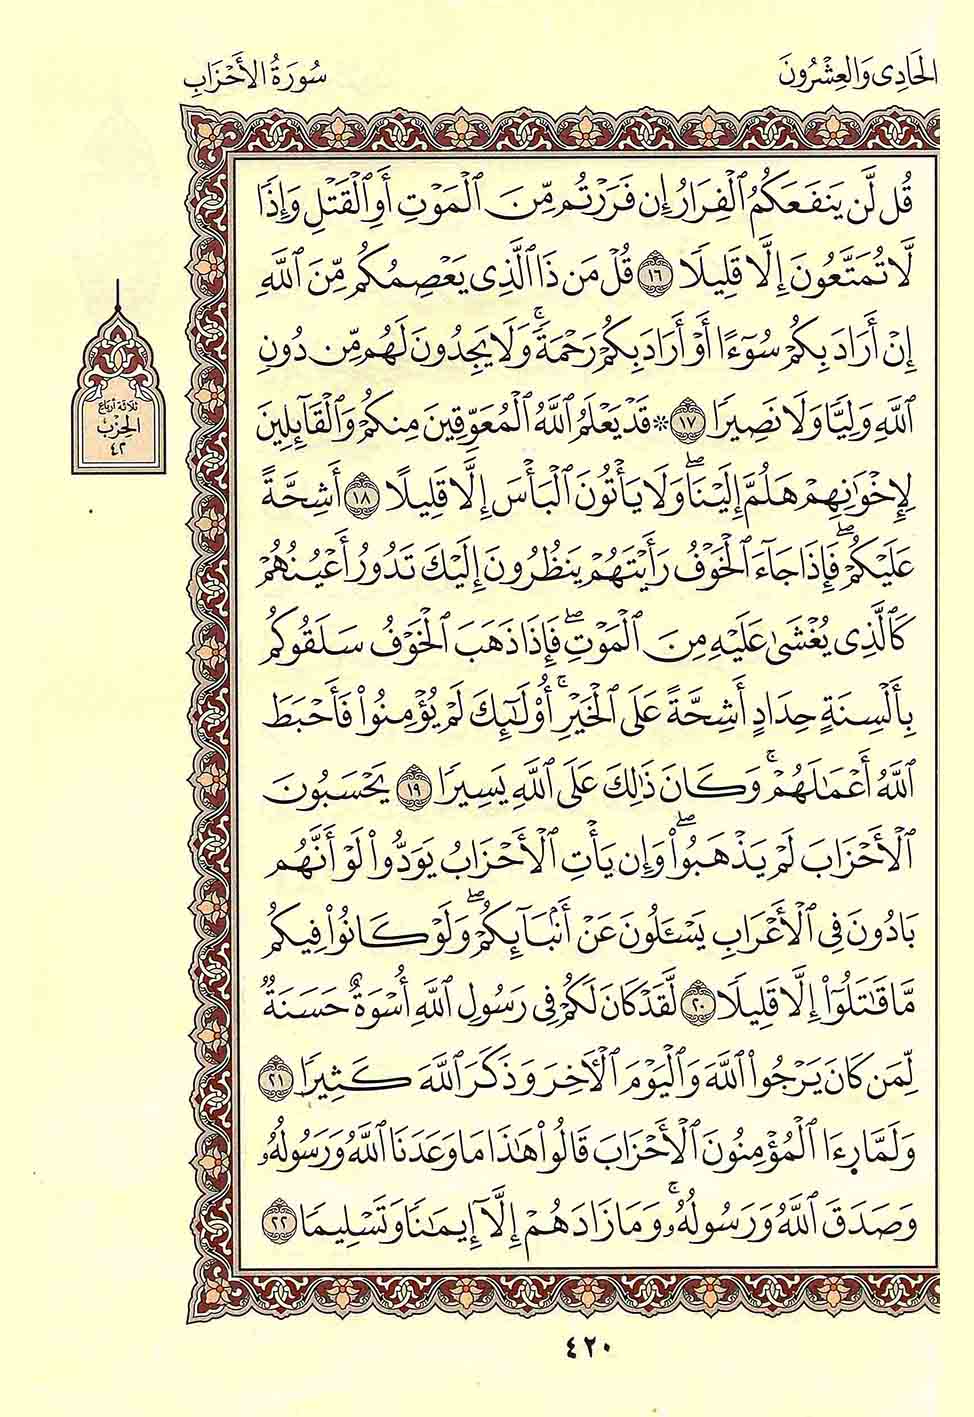 الحَادِى وَالعِشْرُونَ
سُورَةُ الأَحْزَابِ
قُل لَّن يَنفَعَكُمُ ٱلْفِرَارُ إِن فَرَرْتُم مِّنَ ٱلْمَوْتِ أَوِ ٱلْقَتْلِ وَإِذًا
لَّا تُمَتَّعُونَ إِلَّا قَلِيلًا ١٦ قُلْ مَن ذَا ٱلَّذِى يَعْصِمُكُم مِّنَ ٱللَّهِ
إِنْ أَرَادَ بِكُمْ سُوٓءًا أَوْ أَرَادَ بِكُمْ رَحْمَةً ۚ وَلَا يَجِدُونَ لَهُم مِّن دُونِ
ٱللَّهِ وَلِيًّا وَلَا نَصِيرًا ١٧ ۞ قَدْ يَعْلَمُ ٱللَّهُ ٱلْمُعَوِّقِينَ مِنكُمْ وَٱلْقَآئِلِينَ
لِإِخْوَٰنِهِمْ هَلُمَّ إِلَيْنَا ۖ وَلَا يَأْتُونَ ٱلْبَأْسَ إِلَّا قَلِيلًا ١٨ أَشِحَّةً
عَلَيْكُمْ ۖ فَإِذَا جَآءَ ٱلْخَوْفُ رَأَيْتَهُمْ يَنظُرُونَ إِلَيْكَ تَدُورُ أَعْيُنُهُمْ
كَٱلَّذِى يُغْشَىٰ عَلَيْهِ مِنَ ٱلْمَوْتِ ۖ فَإِذَا ذَهَبَ ٱلْخَوْفُ سَلَقُوكُم
بِأَلْسِنَةٍ حِدَادٍ أَشِحَّةً عَلَى ٱلْخَيْرِ ۚ أُو۟لَٰٓئِكَ لَمْ يُؤْمِنُوا۟ فَأَحْبَطَ
ٱللَّهُ أَعْمَٰلَهُمْ ۚ وَكَانَ ذَٰلِكَ عَلَى ٱللَّهِ يَسِيرًا ١٩ يَحْسَبُونَ
ٱلْأَحْزَابَ لَمْ يَذْهَبُوا۟ ۖ وَإِن يَأْتِ ٱلْأَحْزَابُ يَوَدُّوا۟ لَوْ أَنَّهُم
بَادُونَ فِى ٱلْأَعْرَابِ يَسْـَٔلُونَ عَنْ أَنۢبَآئِكُمْ ۖ وَلَوْ كَانُوا۟ فِيكُم
مَّا قَٰتَلُوٓا۟ إِلَّا قَلِيلًا ٢٠ لَّقَدْ كَانَ لَكُمْ فِى رَسُولِ ٱللَّهِ أُسْوَةٌ حَسَنَةٌ
لِّمَن كَانَ يَرْجُوا۟ ٱللَّهَ وَٱلْيَوْمَ ٱلْـَٔاخِرَ وَذَكَرَ ٱللَّهَ كَثِيرًا ٢١
وَلَمَّا رَءَا ٱلْمُؤْمِنُونَ ٱلْأَحْزَابَ قَالُوا۟ هَٰذَا مَا وَعَدَنَا ٱللَّهُ وَرَسُولُهُۥ
وَصَدَقَ ٱللَّهُ وَرَسُولُهُۥ ۚ وَمَا زَادَهُمْ إِلَّآ إِيمَٰنًا وَتَسْلِيمًا ٢٢
ثلاثة أرباع
الحِزْب
٤٢
٤٢٠